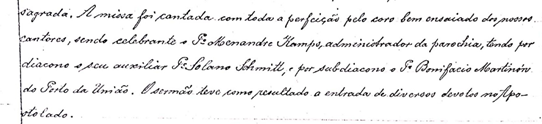 sagrada. A missa foi cantada com toda a perfeição pelo coro bem ensaiado dos nossos
cantores, sendo celebrante o Pe. Menandro Kamps, administrador da parochia, tendo por
diacono o seu auxiliar Pe. Solano Schmitt, e por subdiacono o Pe. Bonifacio Martinón
do Porto da União. O sermão teve como resultado a entrada de diversos devotos no Apo-
stolado.